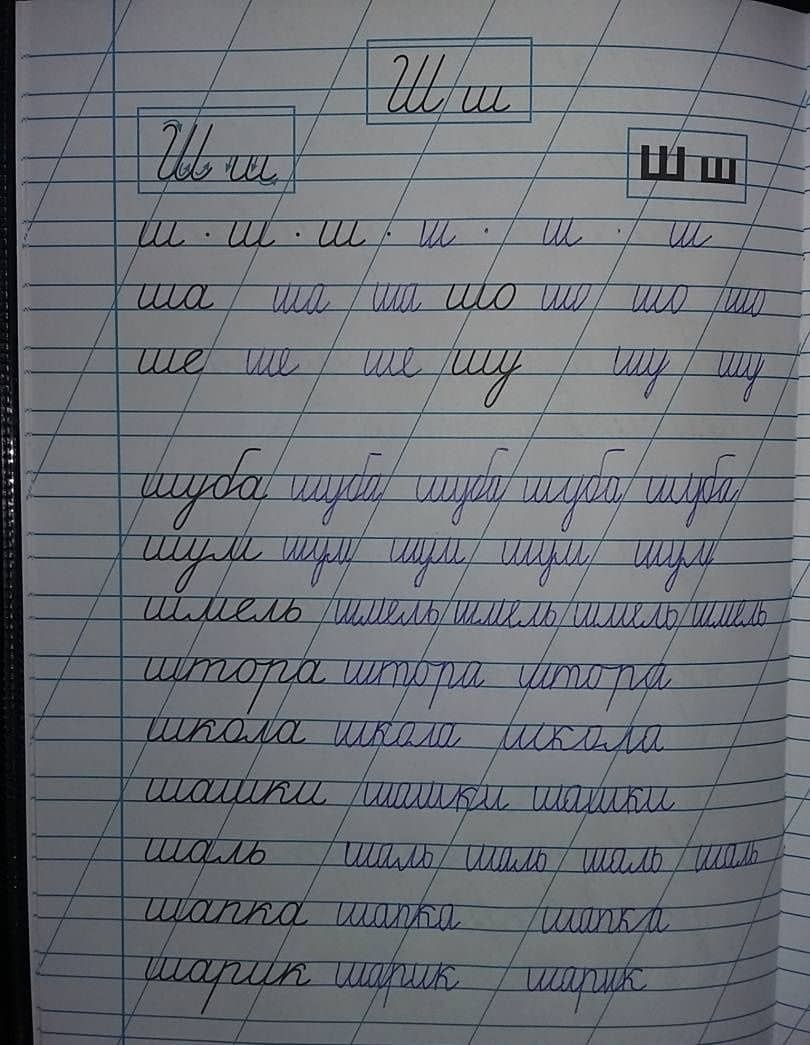 Ш ш
Ш ш
Ш ш
ш · ш · ш · ш · ш · ш
ша ша ша шо шо шо шо
ше ше ше шу шу шу
шуба шуба шуба шуба шуба
шум шум шум шум шум
шмель шмель шмель шмель шмель
штора штора штора
школа школа школа
шашки шашки шашки
шаль шаль шаль шаль шаль
шапка шапка шапка
шарик шарик шарик